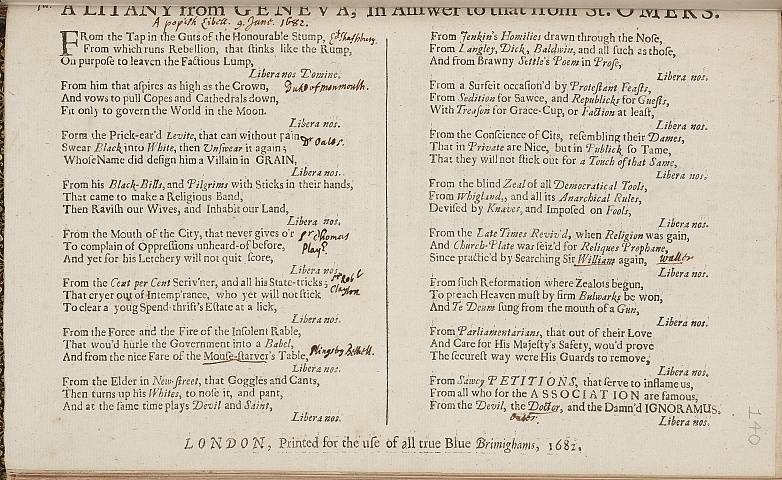 A LITANY from GENEVA, in Answer to that from St. OMERS.
A popish Libell. 9. June. 1682.
FRom the Tap in the Guts of the Honourable Stump, Ld Shaftsbury.
From which runs Rebellion, that stinks like the Rump,
On purpose to leaven the Factious Lump,
Libera nos Domine.
From him that aspires as high as the Crown, Duke of monmouth.
And vows to pull Copes and Cathedrals down,
Fit only to govern the World in the Moon.
Libera nos.
Form the Prick-ear'd Levite, that can without pain Dr Oates.
Swear Black into White, then Unswear it again;
Whose Name did design him a Villain in GRAIN,
Libera nos.
From his Black-Bills, and Pilgrims with Sticks in their hands,
That came to make a Religious Band,
Then Ravish our Wives, and Inhabit our Land,
Libera nos.
From the Mouth of the City, that never gives o'r Sr Thomas
To complain of Oppressions unheard-of before, Play?
And yet for his Letchery will not quit score,
Libera nos.
From the Cent per Cent Scriv'ner, and all his State-tricks; Sr Robt
That cryer out of Intemp'rance, who yet will not stick Clayton
To clear a youg Spend-thrift's Estate at a lick,
Libera nos.
From the Force and the Fire of the Insolent Rable,
That wou'd hurle the Government into a Babel,
And from the nice Fare of the Mouse-starver's Table, Slingsby Bethell.
Libera nos.
From the Elder in New-street, that Goggles and Cants,
Then turns up his Whites, to nose it, and pant,
And at the same time plays Devil and Saint,
Libera nos.
From Jenkin's Homilies drawn through the Nose,
From Langley, Dick, Baldwin, and all such as those,
And from Brawny Settle's Poem in Prose,
Libera nos.
From a Surfeit occasion'd by Protestant Feasts,
From Sedition for Sawce, and Republicks for Guests,
With Treason for Grace-Cup, or Faction at least,
Libera nos.
From the Conscience of Cits, resembling their Dames,
That in Private are Nice, but in Publick so Tame,
That they will not stick out for a Touch of that Same,
Libera nos.
From the blind Zeal of all Democratical Tools,
From Whigland,, and all its Anarchical Rules,
Devised by Knaves, and Imposed on Fools,
Libera nos.
From the Late Times Reviv'd, when Religion was gain,
And Church-Plate was seiz'd for Reliques Prophane,
Since practic'd by Searching Sir William again, waller
Libera nos.
From such Reformation where Zealots begun,
To preach Heaven must by firm Bulwarks be won,
And Te Deum sung from the mouth of a Gun,
Libera nos.
From Parliamentarians, that out of their Love
And Care for His Majesty's Safety, wou'd prove
The securest way were His Guards to remove,
Libera nos.
From Sawcy PETITIONS, that serve to inflame us,
From all who for the ASSOCIATION are famous,
From the Devil, the Doctor, and the Damn'd IGNORAMUS.
Oates.
Libera nos.
LONDON, Printed for the use of all true Blue Brimighams, 1682.
140